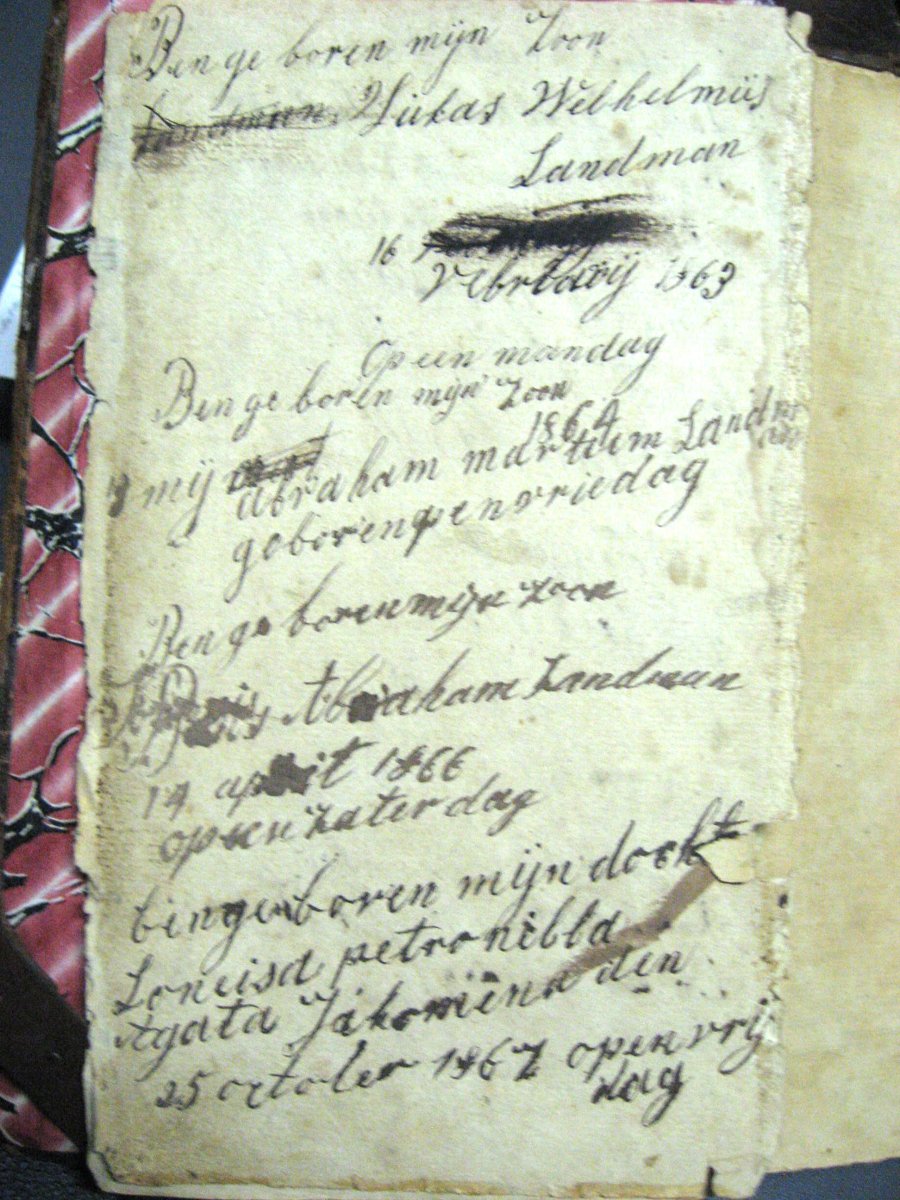 Ben ge boren mijn Zoon
Landman Lukas Welhelmus
Landman
16
Vebruarij 1863
Op een mandag
Ben ge boren mijn Zoon
1864
mij abraham martiem Landman
geboren open vriedag
Ben ge boren mijn zoon
Abraham Landman
14 april 1866
op een zaterdag
ben ge boren mijn docht
Loneisa petronilla
Agata Jakomena den
25 october 1867 open vrij
dag